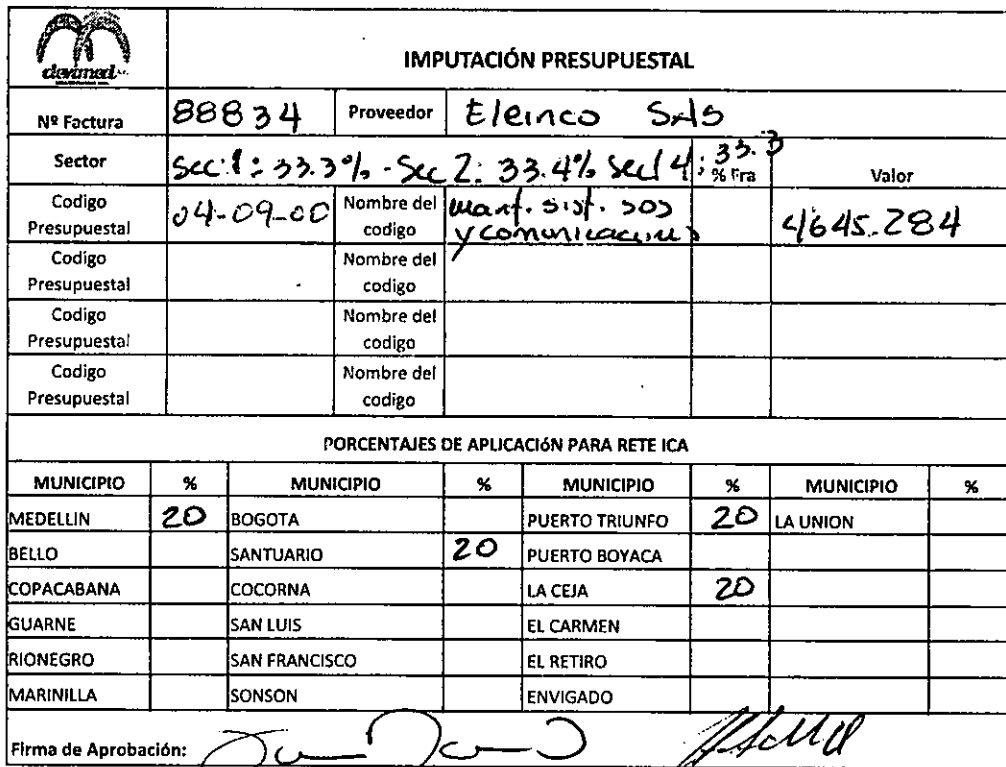 devimed
IMPUTACIÓN PRESUPUESTAL
Nº Factura 88834 Proveedor Eleinco SAS
Sector Sec: 1: 33.3% - Sec 2: 33.4% Sec 4: 33.3 % Fra Valor
Codigo Presupuestal 04-09-00 Nombre del codigo Mant. sist. SOS y comunicaciones 4645.284
Codigo Presupuestal Nombre del codigo
Codigo Presupuestal Nombre del codigo
Codigo Presupuestal Nombre del codigo
PORCENTAJES DE APLICACIÓN PARA RETE ICA
MUNICIPIO % MUNICIPIO % MUNICIPIO % MUNICIPIO %
MEDELLIN 20 BOGOTA PUERTO TRIUNFO 20 LA UNION
BELLO SANTUARIO 20 PUERTO BOYACA
COPACABANA COCORNA LA CEJA 20
GUARNE SAN LUIS EL CARMEN
RIONEGRO SAN FRANCISCO EL RETIRO
MARINILLA SONSON ENVIGADO
Firma de Aprobación: